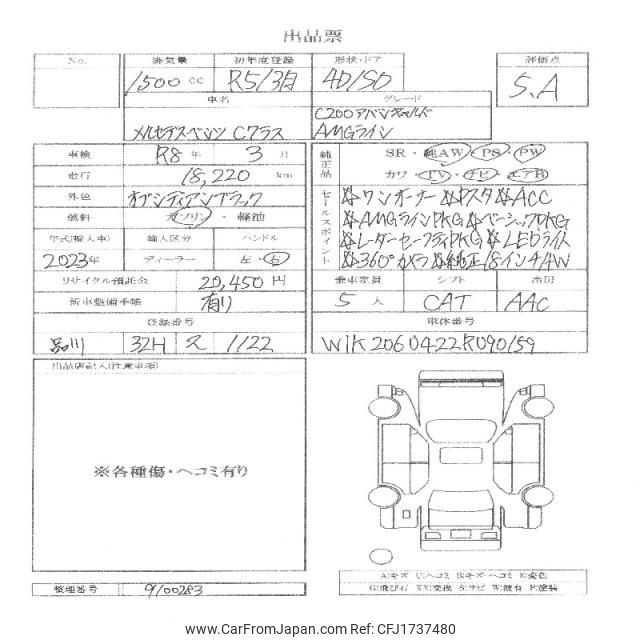 出品票
No. 排気量 初年度登録 形状・ドア 評価点
1500 cc R5/3月 4D/SD S.A
車名 グレード
メルセデス・ベンツ Cクラス C200アバンギャルド
AMGライン
車検 R8 年 3 月
走行 18,220 km
外色 オブシディアンブラック
燃料 ガソリン ・ 軽油
年式(輸入車) 輸入区分 ハンドル
2023年 ディーラー 左・右
リサイクル預託金 20,450 円
新車整備手帳 有り
登録番号
品川 32H ス 1122
純正品 SR・純AW・PS・PW
カワ・TV・ナビ・エアB
セールスポイント
※ワンオーナー ※Pスタ ※ACC
※AMGラインPKG ※ベーシックPKG
※レーダーセーフティPKG ※LEDライト
※360°カメラ ※純正18インチAW
乗車定員 シフト 冷房
5 人 CAT AAC
車体番号
W1K2060422R090159
出品店記入(注意事項)
※各種傷・ヘコミ有り
A:キズ U:ヘコミ B:キズ・ヘコミ E:変色
G:飛び石 XX:交換 S:サビ W:波有 P:塗装
整理番号 9100283
www.CarFromJapan.com - CFJ1737480